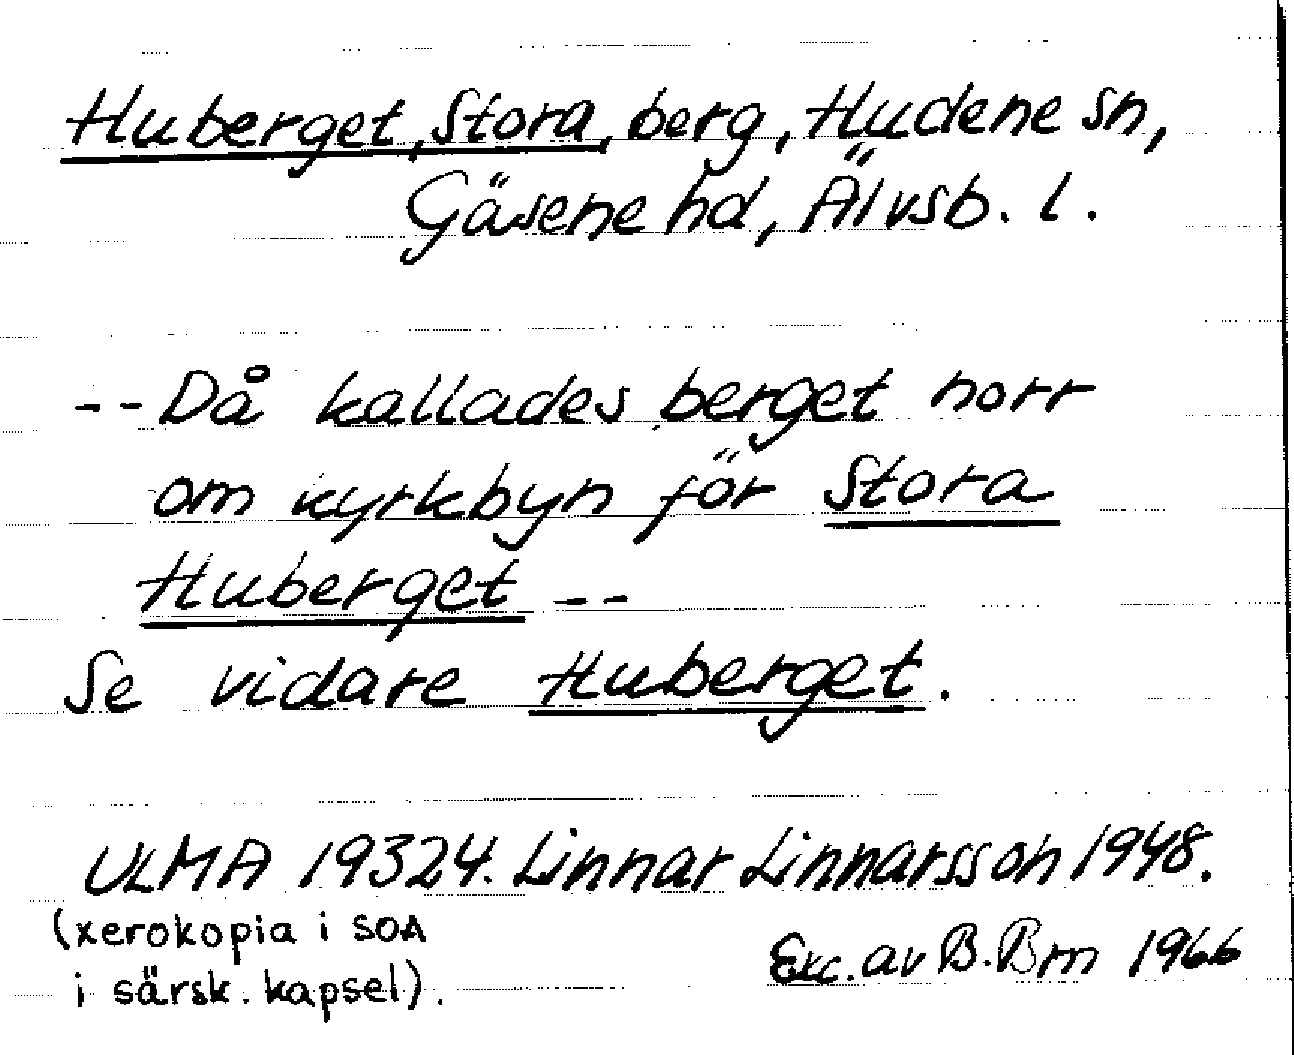 Huberget, Stora, berg, Hudene sn,
Gäsene hd, Älvsb. l.
-- Då kallades berget norr
om kyrkbyn för Stora
Huberget --
Se vidare Huberget.
ULMA 19324. Linnar Linnarsson 1948.
(xerokopia i SOA
i särsk. kapsel).
Exc. av B. Brn 1966